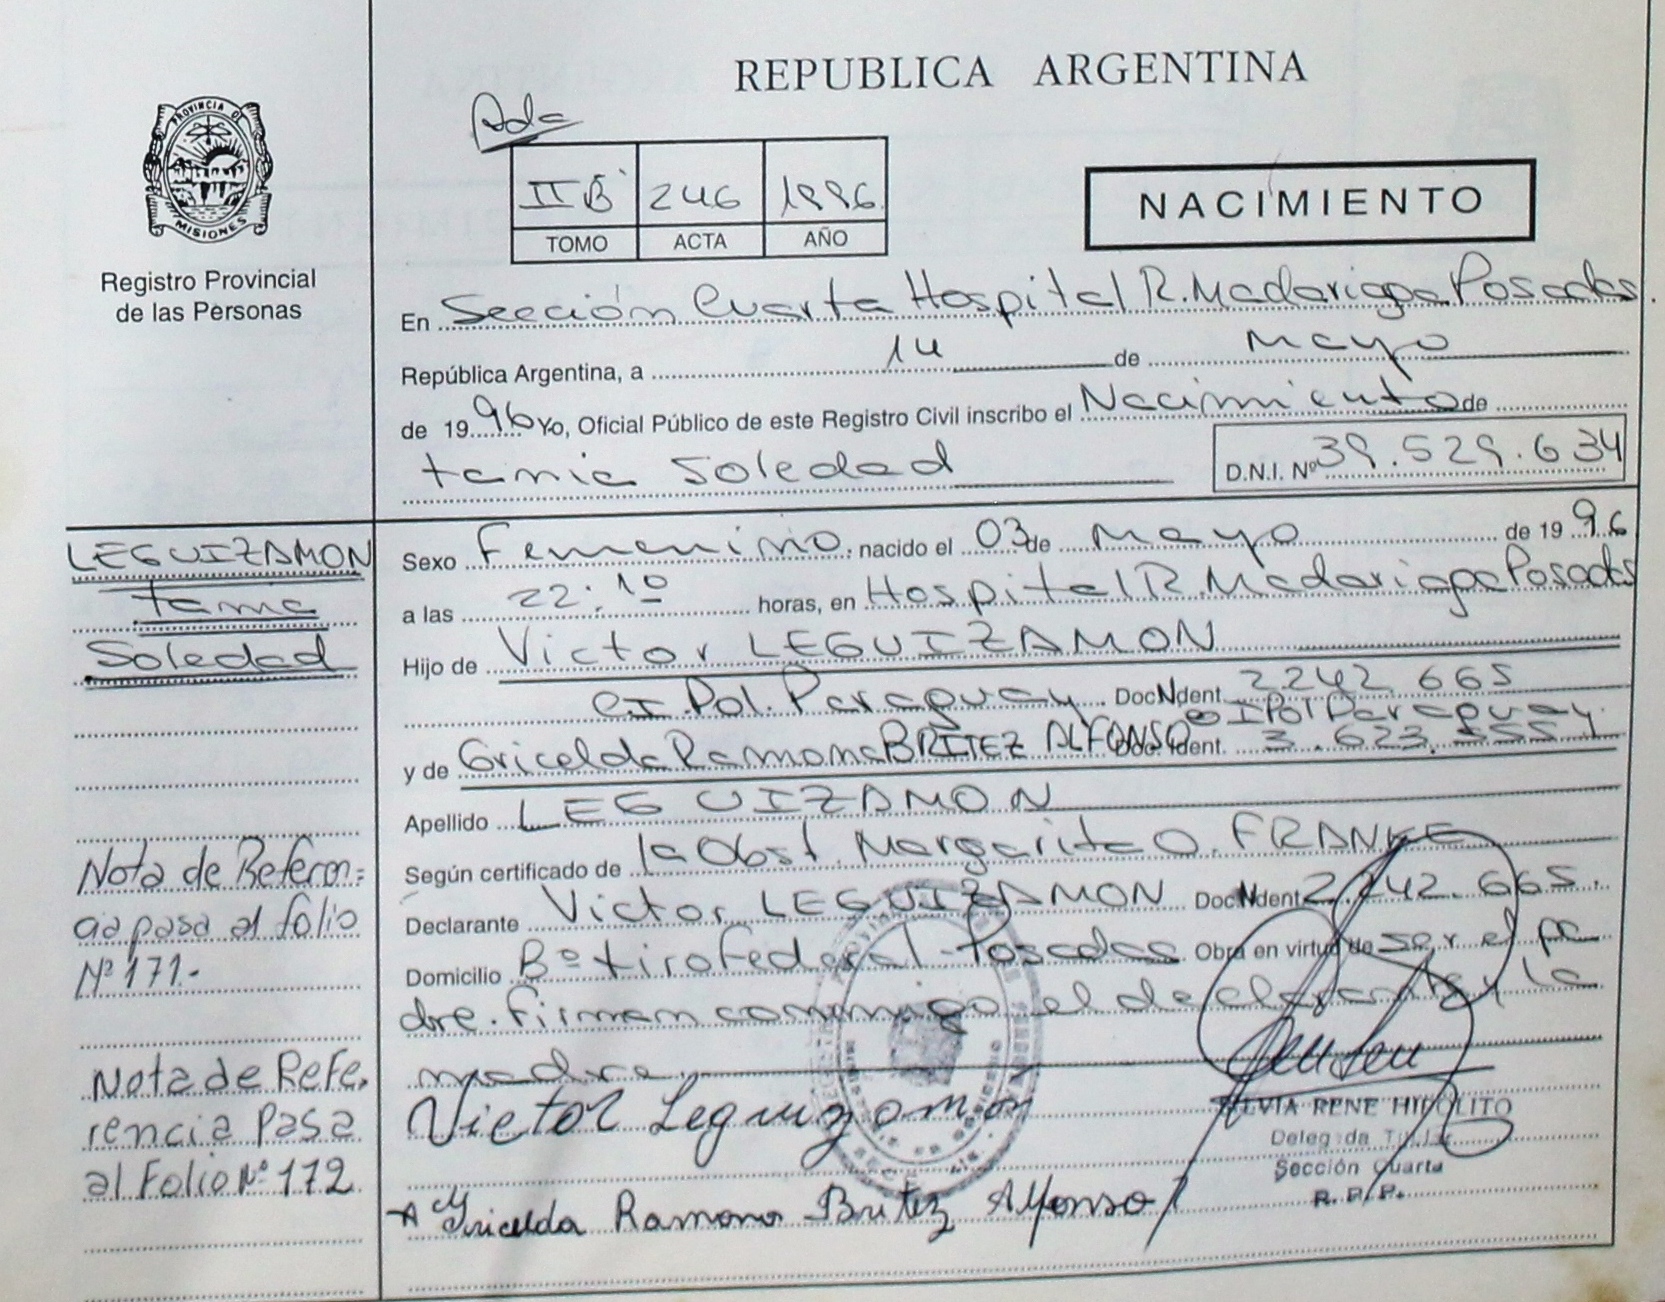 REPUBLICA ARGENTINA
PROVINCIA DE
MISIONES
Registro Provincial
de las Personas
Ada
II B 246 1996
TOMO ACTA AÑO
NACIMIENTO
En Sección Cuarta Hospital R. Madariaga Posadas.
República Argentina, a 14 de Mayo
de 1996 Yo, Oficial Público de este Registro Civil inscribo el Nacimiento de
tania Soledad D.N.I. Nº 39.529.634
LEGUIZAMON
tania
Soledad
Sexo Femenino. nacido el 03 de Mayo de 1996
a las 22:10 horas, en Hospital R. Madariaga Posadas
Hijo de Victor LEGUIZAMON
CI. Pol. Paraguay. Doc. Ident. 2242 665
CIPol Paraguay.
y de Gricelda Ramona BRITEZ ALFONSO Doc. Ident. 3.623.555
Apellido LEGUIZAMON
Según certificado de la Obst. Margarita O. FRANKE
Declarante Victor LEGUIZAMON Doc. Ident 2.242.665.
Domicilio Bº tiro Federal - Posadas. Obra en virtud de ser el pa
dre. Firman conmigo el declarante y la
madre.
Victor Leguizamon
Gricelda Ramona Britez Alfonso
SILVIA RENE HIPOLITO
Delegada Titular
Sección Cuarta
R. P. P.
Nota de Referen=
cia pasa al folio
Nº 171.-
Nota de Refe,
rencia Pasa
al Folio Nº 172